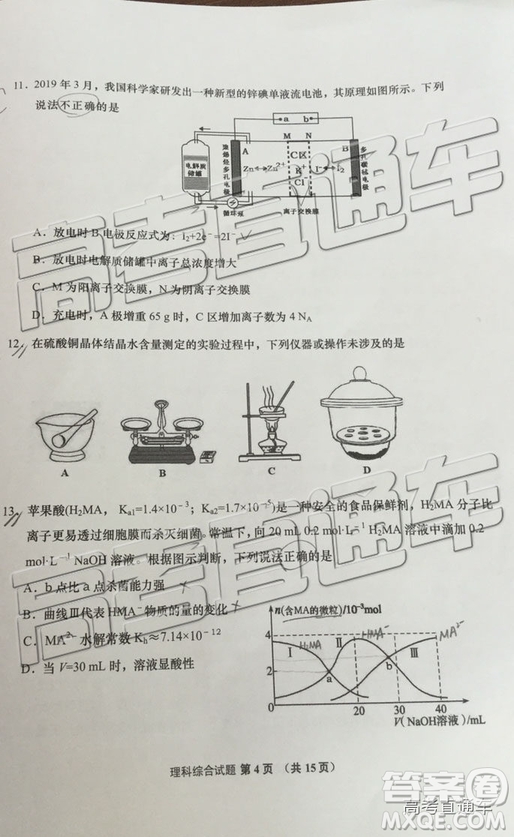 11．2019 年 3 月，我国科学家研发出一种新型的锌碘单液流电池，其原理如图所示。下列
说法不正确的是
a b
M N
电解质
储罐
A
Zn Zn²⁺
C区
K⁺
Cl⁻
I⁻ I₂
B
循环泵
离子交换膜
A．放电时 B 电极反应式为：I₂+2e⁻=2I⁻
B．放电时电解质储罐中离子总浓度增大
C．M 为阳离子交换膜，N 为阴离子交换膜
D．充电时，A 极增重 65 g 时，C 区增加离子数为 4 NA
12．在硫酸铜晶体结晶水含量测定的实验过程中，下列仪器或操作未涉及的是
A B C D
13．苹果酸(H₂MA， Ka1=1.4×10⁻³；Ka2=1.7×10⁻⁵)是一种安全的食品保鲜剂，H₂MA 分子比
离子更易透过细胞膜而杀灭细菌。常温下，向 20 mL 0.2 mol·L⁻¹ H₂MA 溶液中滴加 0.2
mol·L⁻¹ NaOH 溶液。根据图示判断，下列说法正确的是
A．b 点比 a 点杀菌能力强
B．曲线Ⅲ代表 HMA⁻ 物质的量的变化
C．MA²⁻ 水解常数 Kh≈7.14×10⁻¹²
D．当 V=30 mL 时，溶液显酸性
n(含MA的微粒)/10⁻³mol
4
2
Ⅰ H₂MA Ⅱ HMA⁻ Ⅲ MA²⁻
a b
20 30 40
V(NaOH溶液)/mL
理科综合试题 第 4 页 （共 15 页）
高考直通车
高考直通车
答案卷
高考直通车
MXQE.COM